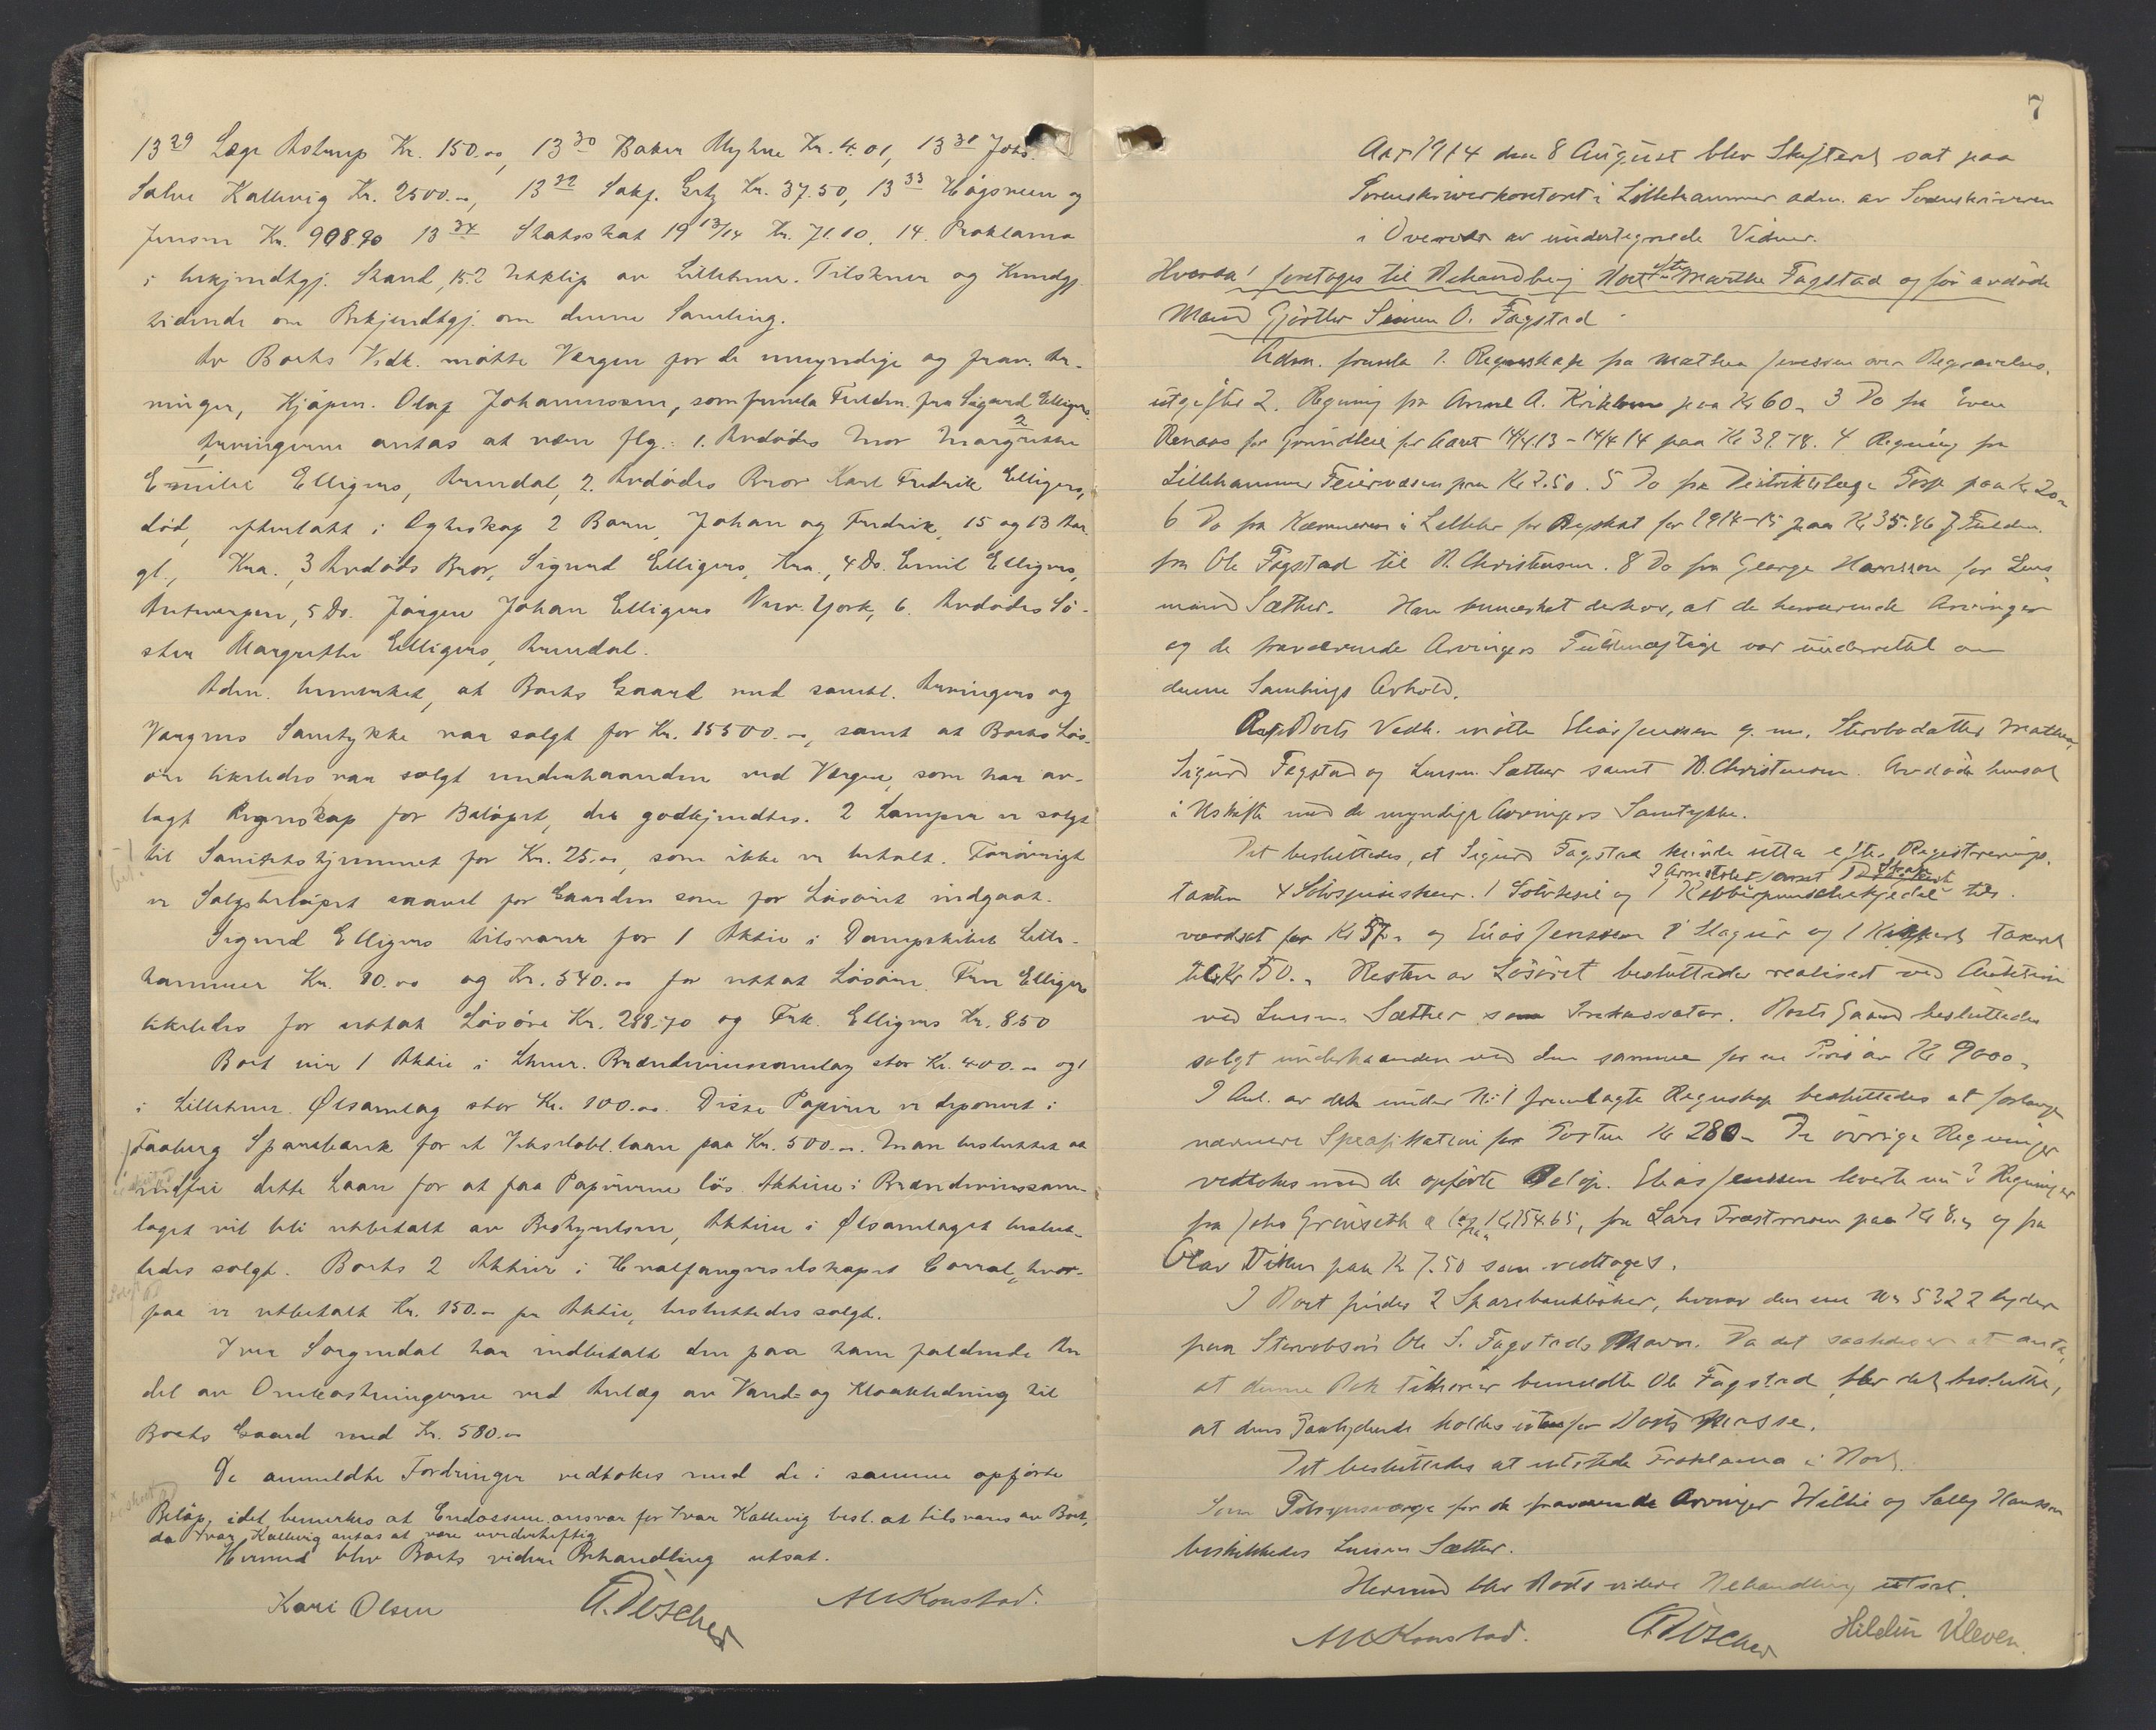 13 29 Læge Astrup Kr. 150.00, 13 30 Baker Myhre Kr. 4.01, 13 31 Johs.
Salve Kallevig Kr. 2500.00, 13 32 Sakf. Kr. 37.50, 13 33 Høgsveen og
Jensen Kr. 908.90 13 34 Statsskat 19 13/14 Kr. 71.10. 14. Proklama
i bekjendtgj. Stand, 15. 2 Utklip av Lillehmr. Tilskuer og Kundgj.
tidende om Bekjendtgj. om denne Samling.
Av Boets Vedk. møtte Værgen for de umyndige og frav. Ar-
vinger, Kjøpm. Olaf Johannessen, som fremla Fuldm. fra Sigurd Elligers.
2
Arvingerne antas at være flg.: 1. Avdødes Mor Margrethe
Emilie Elligers, Arendal, 2. Avdødes Bror Karl Fredrik Elligers,
død, efterlatt i Egteskap 2 Barn, Johan og Fredrik, 15 og 13 Aar
gl., Kra., 3 Avdøds Bror, Sigurd Elligers, Kra., 4 Do. Emil Elligers,
Antwerpen, 5 Do. Jørgen Johan Elligers New-York, 6. Avdødes Sø-
ster Margrethe Elligers, Arendal.
Adm. bemerket, at Boets Gaard med samtl. Arvingers og
Værgers Samtykke var solgt for Kr. 15500.00, samt at Boets Løs-
øre likeledes var solgt underhaanden ved Værgen, som har av-
lagt Regnskap for Beløpet, der godkjendtes. 2 Lamper er solgt
til for Kr. 25.00, som ikke er betalt. Forøvrigt
er Salgsbeløpet saavel for Gaarden som for Løsøret indgaat.
Sigurd Elligers tilsvarer for 1 Aktie i Dampskibet Lille-
hammer Kr. 10.00 og Kr. 540.00 for uttat Løsøre. Fru Elligers
likeledes for uttat Løsøre Kr. 288.70 og Frk. Elligers Kr. 8.50
Boet eier 1 Aktie i Lhmr. Brændevinssamlag stor Kr. 400.00 og 1
i Lillehmr. Ølsamlag stor Kr. 100.00. Disse Papirer er deponert i
Faaberg Sparebank for et Vekselobl. laan paa Kr. 500.00. Man besluttet at
indfri dette Laan for at faa Papirerne løs. Aktien i Brændevinssam-
laget vil bli utbetalt av Bestyrelsen, Aktien i Ølsamlaget beslut-
tedes solgt. Boets 2 Aktier i Hvalfangerselskapet Corral, hvor-
paa er utbetalt Kr. 150.00 pr Aktie, besluttedes solgt.
Iver Sorgendal har indbetalt den paa ham faldende An
del av Omkostningerne ved Anlæg av Vand- og Kloakledning til
Boets Gaard med Kr. 580.00
De anmeldte Fordringer vedtokes med de i samme opførte
Beløp, idet bemerkes at Endossementansvar for Ivar Kallevig besl. at tilsvares av Boet,
da Ivar Kallevig antas at være uvederheftig
Hermed blev Boets videre Behandling utsat.
Kari Olsen A. Discher M Konstad.
7
Aar 1914 den 8 August blev Skifteret sat paa
Sorenskriverkontoret i Lillehammer adm. av Sorenskriveren
i Overvær av undertegnede Vidner.
Hvorda! foretages til Behandling Boet efter Marthe Fagstad og før avdøde
Mand Gjørtler Simen O. Fagstad.
Adm. fremla 1. Regnskap fra Mathea Jenssen over Begravelses-
utgifter 2. Regning fra Anne A. paa Kr 60.- 3 Do fra Even
Renaas for Grundleie for Aaret 14/4 13 - 14/4 14 paa Kr 39.78. 4 Regning fra
Lillehammer Feiervæsen paa Kr 2.50. 5 Do fra Distriktslæge Torp paa Kr 20.-
6 Do fra Kæmneren i Lillehr for Byskat for 1914-15 paa Kr 35.86 7 Fuldm.
fra Ole Fagstad til B. Christensen. 8 Do fra George Hanssen for Lens-
mand Sæther. Han bemerket derhos, at de herværende Arvinger
og de fraværende Arvingers Fuldmægtige var underrettet om
denne Samlings Avhold.
For Boets Vedk. møtte Elias Jenssen g. m. Stervbodatter Mathea,
Sigurd Fagstad og Lensm. Sæther samt B. Christensen. Avdøde hensat
i Uskifte med de myndige Arvingers Samtykke.
Det besluttedes, at Sigurd Fagstad kunde utta efter Registrerings-
taksten 4 Sølvspiseskeer. 1 Sølvtesi og 1 Kobberpunschekjedel til.
værdsat for Kr 57.- og Elias Jenssen 1 Slagur og 1 takseret
til Kr 150.- Resten av Løsøret besluttedes realisert ved Auktion
ved Lensm. Sæther som Inkassator. Boets Gaard besluttedes
solgt underhaanden ved den samme for en Pris av Kr 9000.-
I Anl. av det under No 1 fremlagte Regnskap besluttedes at forlange
nærmere Spesifikation for Posten Kr 280.- De øvrige Regninger
vedtokes med de opførte Beløp. Elias Jenssen leverte nu 3 Regninger
fra Johs Grønseth & Co paa Kr 154.65, fra Lars paa Kr 8.- og fra
Olav paa Kr 7.50 som vedtoges.
I Boet findes 2 Sparebankbøker, hvorav den ene Nr 5322 lyder
paa Stervbsøn Ole S. Fagstads Navn. Da det saaledes er at anta,
at denne Bok tilhører bemeldte Ole Fagstad blev det besluttet,
at dens Paalydende holdes utenfor Boets Masse.
Det besluttedes at utstede Proklama i Boet.
Som Tilsynsværge for de fraværende Arvinger Willie og Sally Hanssen
beskikkedes Lensm Sæther.
Hermed blev Boets videre Behandling utsat.
M Konstad. A Discher Hildur Kleven.